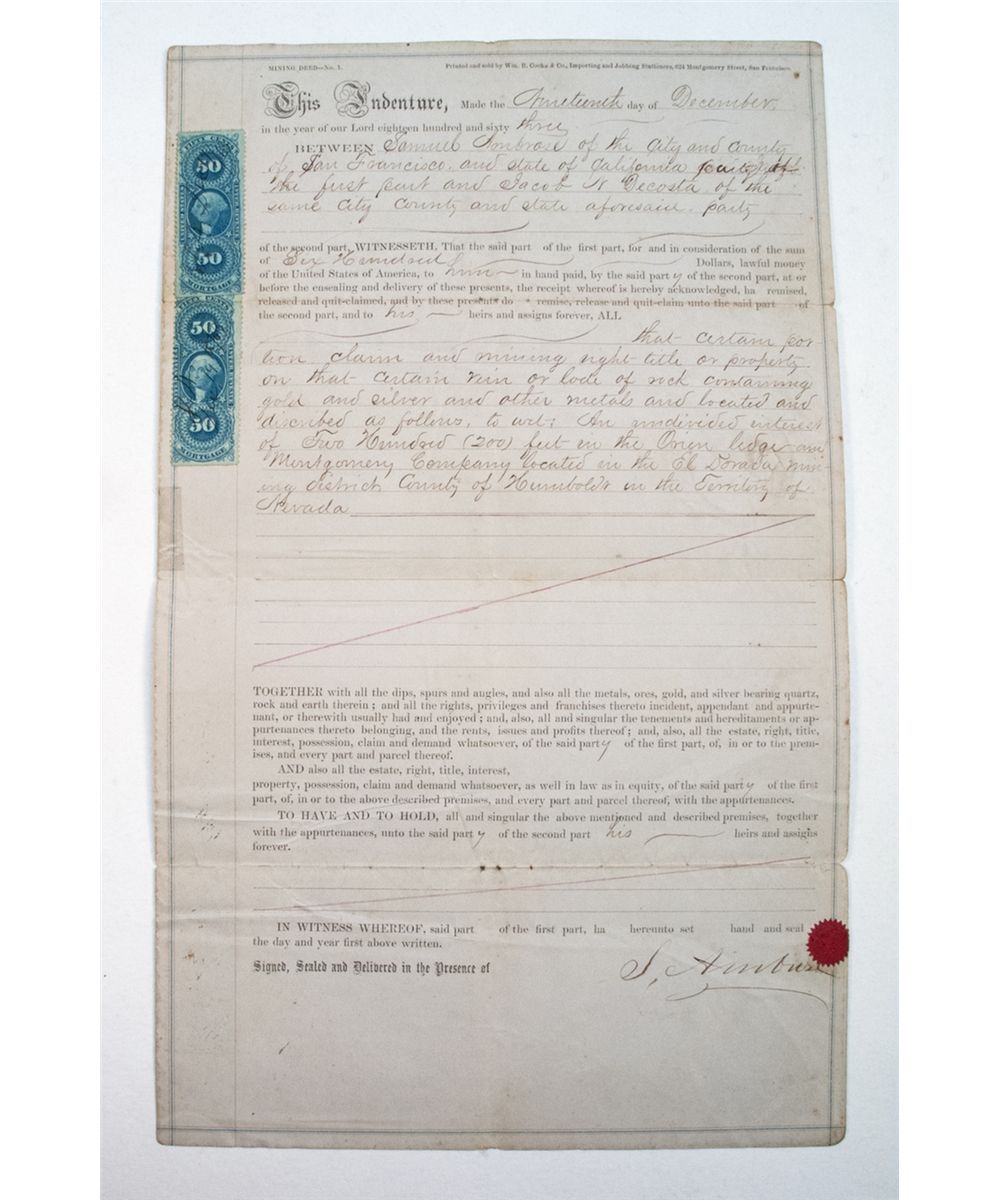 MINING DEED—No. 1. Printed and sold by Wm. B. Cooke & Co., Importing and Jobbing Stationers, 624 Montgomery Street, San Francisco.
This Indenture, Made the Nineteenth day of December
in the year of our Lord eighteen hundred and sixty three
BETWEEN Samuel Ambrose of the City and County
of San Francisco and state of California
the first part and Jacob N Decosta of the
same City County and state aforesaid party
of the second part, WITNESSETH, That the said part of the first part, for and in consideration of the sum
of Six Hundred Dollars, lawful money
of the United States of America, to him in hand paid, by the said party of the second part, at or
before the ensealing and delivery of these presents, the receipt whereof is hereby acknowledged, ha remised,
released and quit-claimed, and by these presents do remise, release and quit-claim unto the said part of
the second part, and to his heirs and assigns forever, ALL
that certain por
tion claim and mining right title or property
on that certain vein or lode of rock containing
gold and silver and other metals and located and
discribed as follows, to wit; An undivided interest
of Two Hundred (200) feet in the Orion ledge and
Montgomery Company located in the El Dorada min
ing district County of Humboldt in the Territory of
Nevada
TOGETHER with all the dips, spurs and angles, and also all the metals, ores, gold, and silver bearing quartz,
rock and earth therein; and all the rights, privileges and franchises thereto incident, appendant and appurte-
nant, or therewith usually had and enjoyed; and, also, all and singular the tenements and hereditaments or ap-
purtenances thereto belonging, and the rents, issues and profits thereof; and, also, all the estate, right, title,
interest, possession, claim and demand whatsoever, of the said party of the first part, of, in or to the prem-
ises, and every part and parcel thereof.
AND also all the estate, right, title, interest,
property, possession, claim and demand whatsoever, as well in law as in equity, of the said party of the first
part, of, in or to the above described premises, and every part and parcel thereof, with the appurtenances.
TO HAVE AND TO HOLD, all and singular the above mentioned and described premises, together
with the appurtenances, unto the said party of the second part his heirs and assigns
forever.
IN WITNESS WHEREOF, said part of the first part, ha hereunto set hand and seal
the day and year first above written.
Signed, Sealed and Delivered in the Presence of
S,
FIFTY CENTS
50
50
MORTGAGE
FIFTY CENTS
50
50
MORTGAGE